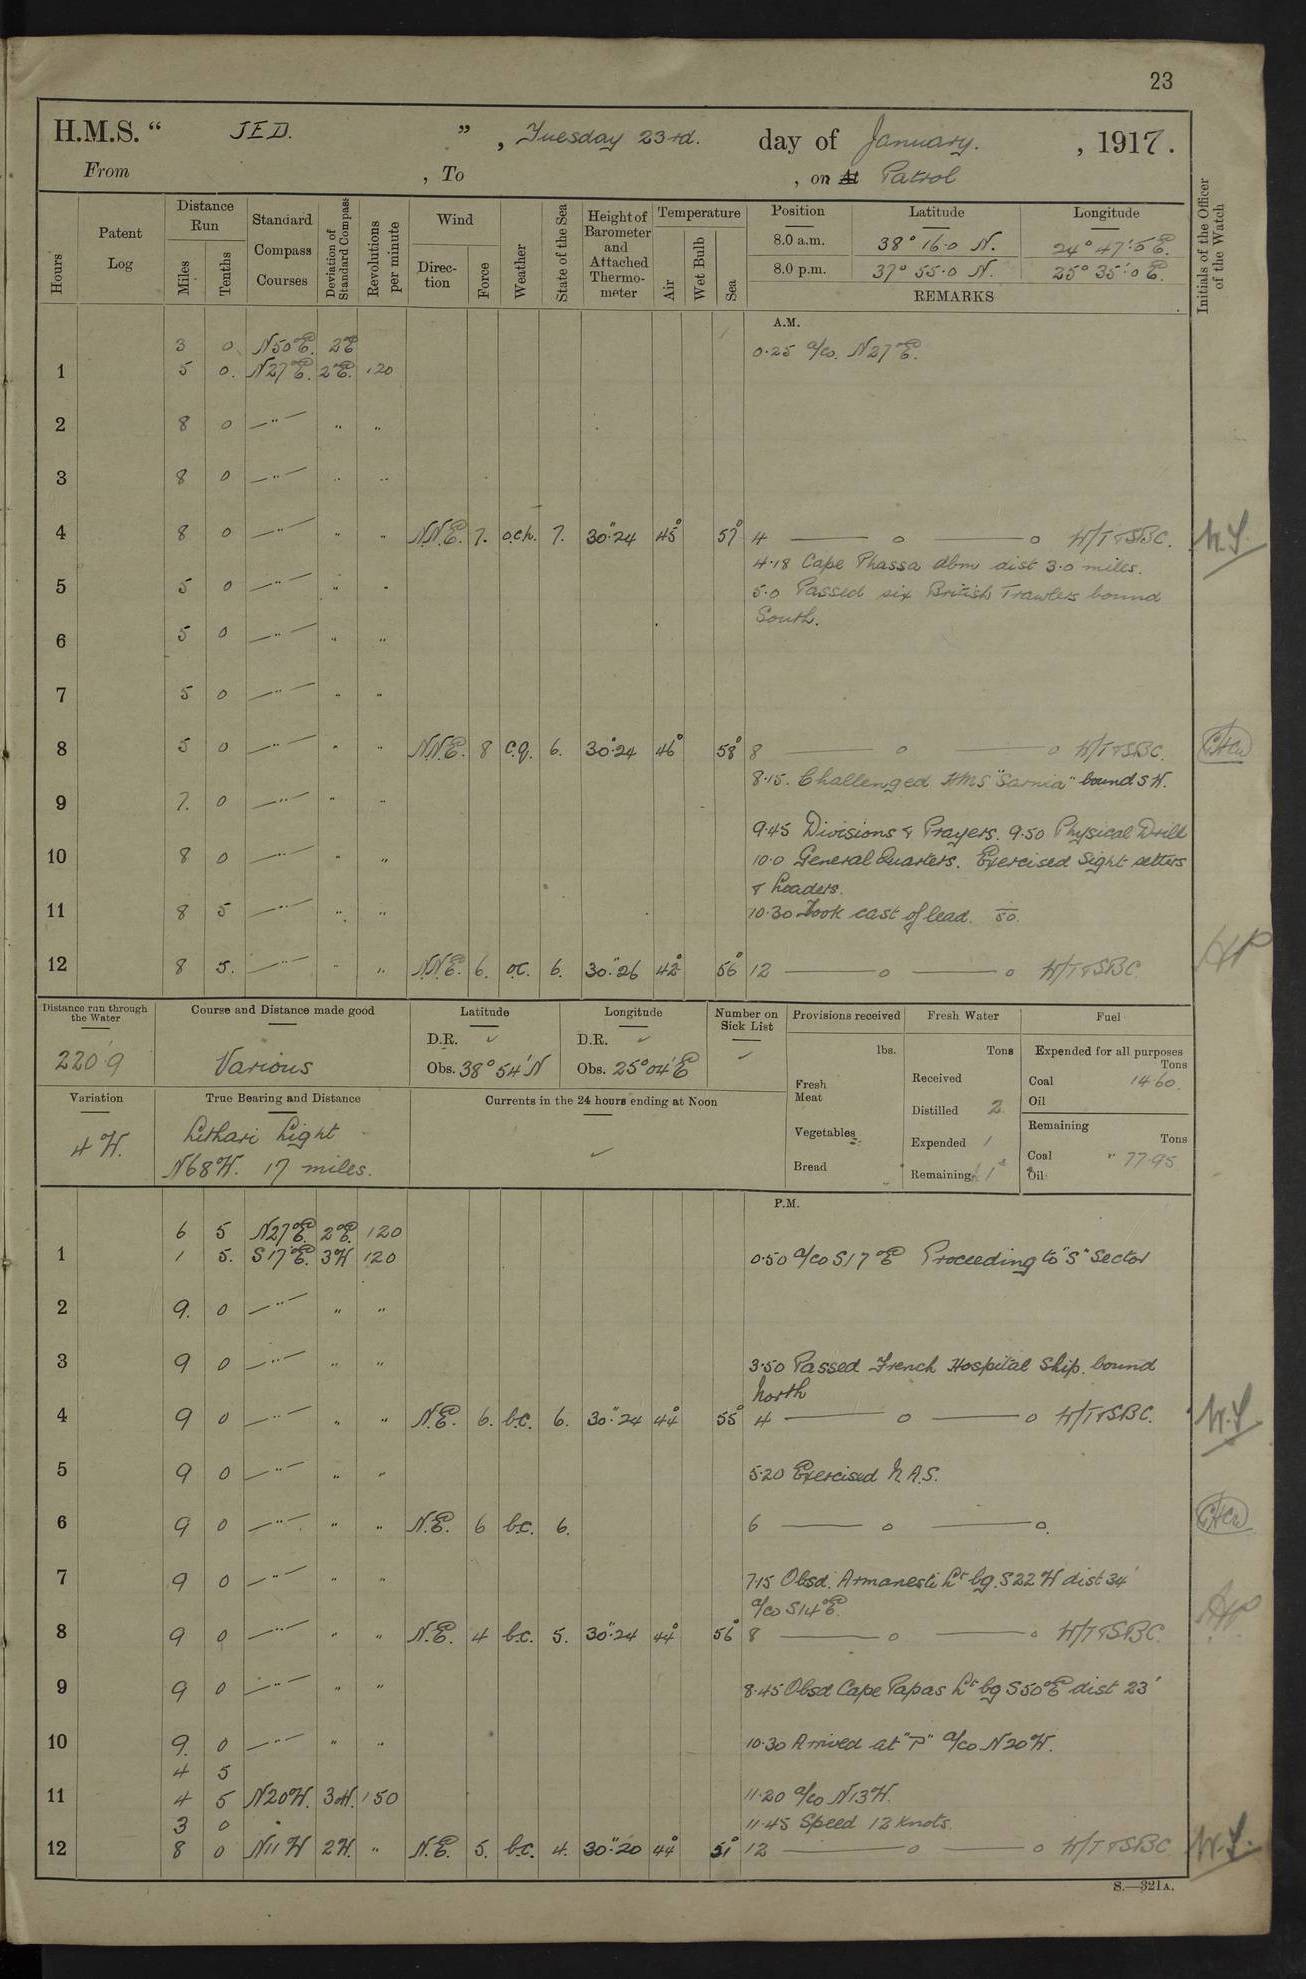 23
H.M.S. “ JED. ” , Tuesday 23rd. day of January. , 1917.
From , To , on At Patrol
Hours
Patent Log
Distance Run
Miles
Tenths
Standard Compass Courses
Deviation of Standard Compass
Revolutions per minute
Wind
Direction
Force
Weather
State of the Sea
Height of Barometer and Attached Thermometer
Temperature
Air
Wet Bulb
Sea
Position Latitude Longitude
8.0 a.m. 38° 16·0 N. 24° 47'·5 E.
8.0 p.m. 37° 55·0 N. 25° 35'·0 E.
REMARKS
Initials of the Officer of the Watch
A.M.
3 0. N50°E. 2°E 0·25 a/co. N27°E.
1 5 0. N27°E. 2°E. 120
2 8 0 —"— " "
3 8 0 —"— " "
4 8 0 —"— " " N.N.E. 7. o.c.h. 7. 30"·24 45° 57° 4 — o — o W/T & SBC. W.S.
4·18 Cape Phassa abm dist 3·0 miles.
5 5 0 —"— " " 5·0 Passed six British Trawlers bound
South.
6 5 0 —"— " "
7 5 0 —"— " "
8 5 0 —"— " " N.N.E. 8 c.q. 6. 30"·24 46° 58° 8 — o — o W/T & SBC.
8·15. Challenged HMS "Sarnia" bound SW.
9 7. 0 —"— " "
9·45 Divisions & Prayers. 9·50 Physical Drill
10 8 0 —"— " " 10·0 General Quarters. Exercised Sight setters
& Loaders.
11 8 5 —"— " " 10·30 Took cast of lead. 50.
12 8 5. —"— " " N.N.E. 6. o.c. 6. 30"·26 42° 56° 12 — o — o W/T & SBC. HP
Distance run through the Water
220·9
Course and Distance made good
Various
Latitude
D.R. ✓
Obs. 38° 54' N
Longitude
D.R. ✓
Obs. 25° 04' E
Number on Sick List
✓
Provisions received
lbs.
Fresh Meat
Vegetables
Bread
Fresh Water
Tons
Received
Distilled 2
Expended 1
Remaining
Fuel
Expended for all purposes
Tons
Coal 14·60.
Oil
Remaining
Tons
Coal " 77·95
Oil
Variation
4 W.
True Bearing and Distance
Lithari Light
N68W. 17 miles.
Currents in the 24 hours ending at Noon
✓
P.M.
6 5 N27°E. 2°E. 120
1 1 5. S17°E. 3W 120 0·50 a/co S17°E Proceeding to "S" Sector
2 9. 0 —"— " "
3 9 0 —"— " " 3·50 Passed French Hospital Ship. bound
North
4 9 0 —"— " " N.E. 6. b.c. 6. 30"·24 44° 55° 4 — o — o W/T & SBC. W.S.
5 9 0 —"— " " 5·20 Exercised N.A.S.
6 9 0 —"— " " N.E. 6 b.c. 6. 6 — o — o.
7 9 0 —"— " " 7·15 Obsd. Armenesti Lt bg. S22W dist 34'
a/co S14°E.
8 9 0 —"— " " N.E. 4 b.c. 5. 30"·24 44° 56° 8 — o — o W/T & SBC. HP
9 9 0 —"— " " 8·45 Obsd Cape Papas Lt bg S50°E dist 23'
10 9. 0 —"— " " 10·30 Arrived at "P" a/co N20W.
4 5
11 4 5 N20W. 3W. 150 11·20 a/co N13W.
3 0 11·45 Speed 12 knots.
12 8 0 N11W 2W. " N.E. 5. b.c. 4. 30"·20 44° 51° 12 — o — o W/T & SBC W.S.
S.—321A.